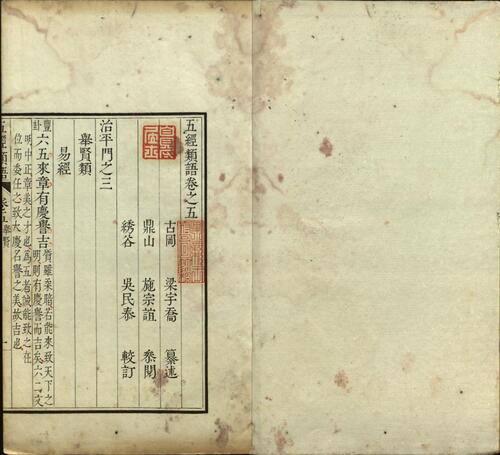 五經類語卷之五
古岡 梁宇喬 纂述
鼎山 施宗誼 參閱
綉谷 吳民泰 較訂
治平門之三
舉賢類
易經
豐卦 六五來章有慶譽吉 質雖柔暗若能來致天下之
明則有慶譽而吉矣 六二文
明中正章美之才也為五者誠能致之在
位而委任之致大慶名譽之美故吉也
五經類語
舉賢
一